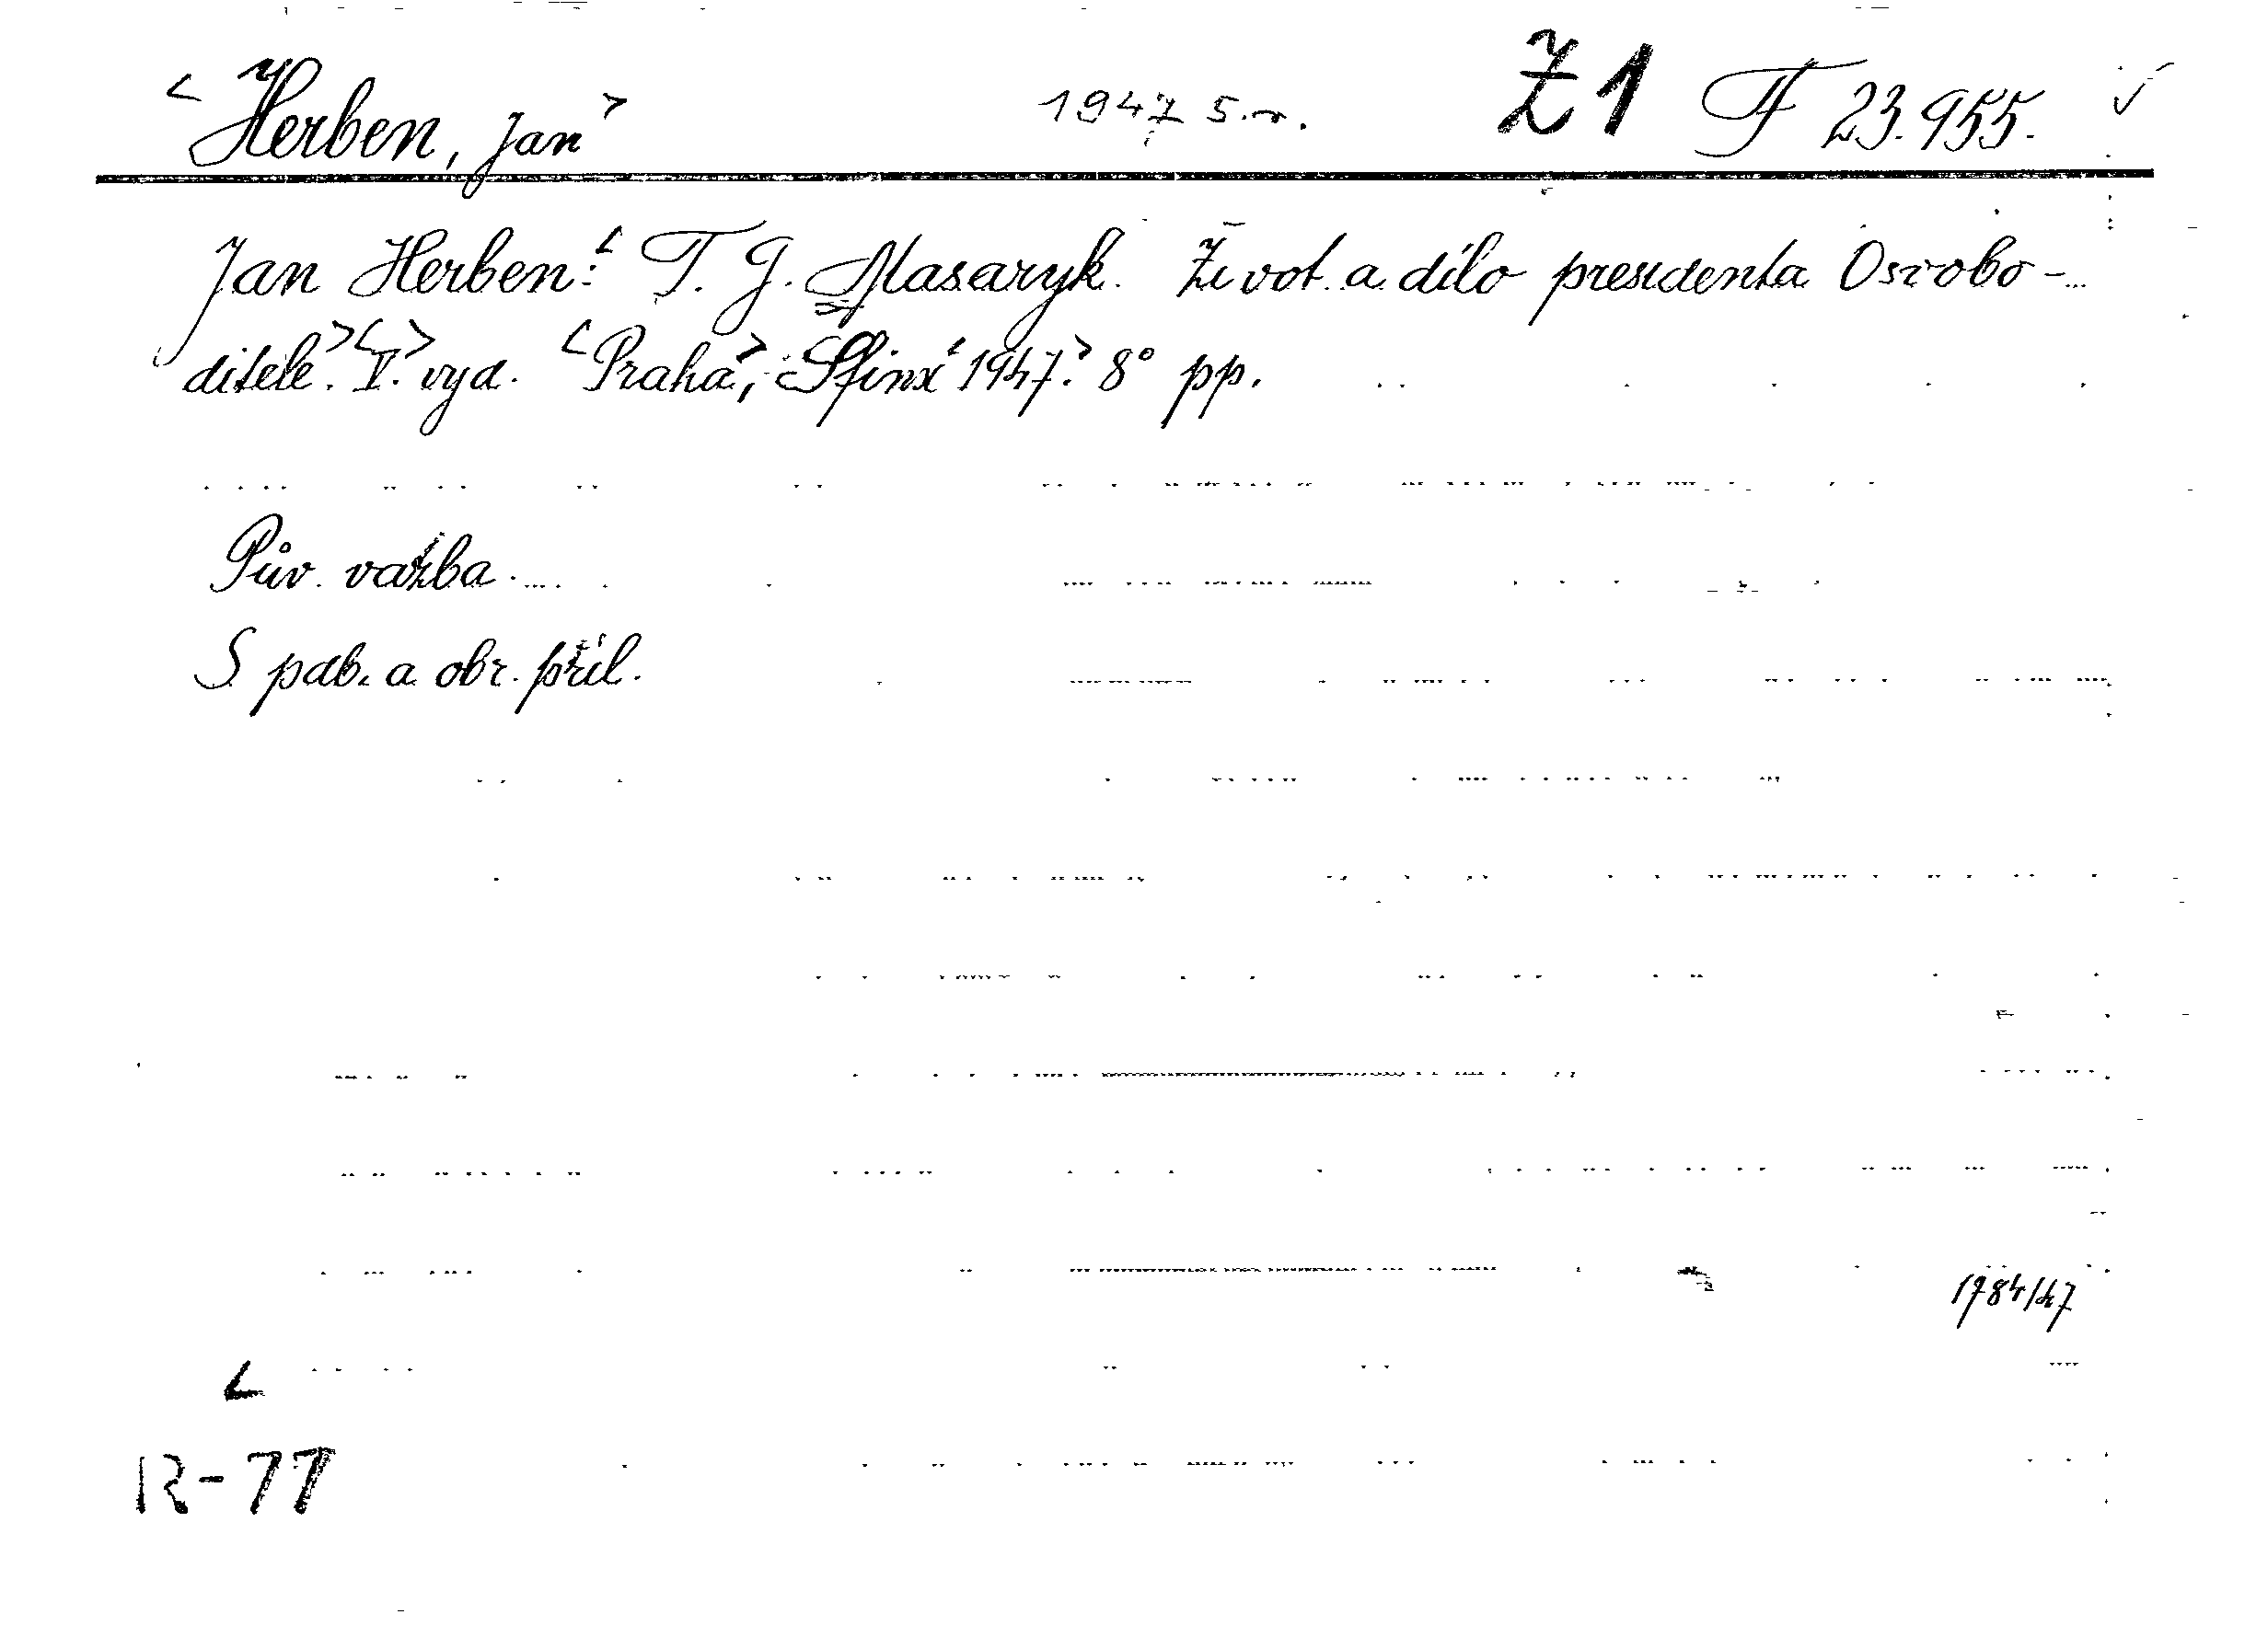 <Herben, Jan> 1947 5.r. Ž1 F 23.955. ✓
Jan Herben:<T. G. Masaryk. Život a dílo presidenta Osvobo-
ditele.><V.>vyd. <Praha>, Sfinx<1947.> 8° pp.
Pův. vazba.
S pdb. a obr. příl.
1784/47
<
R-77